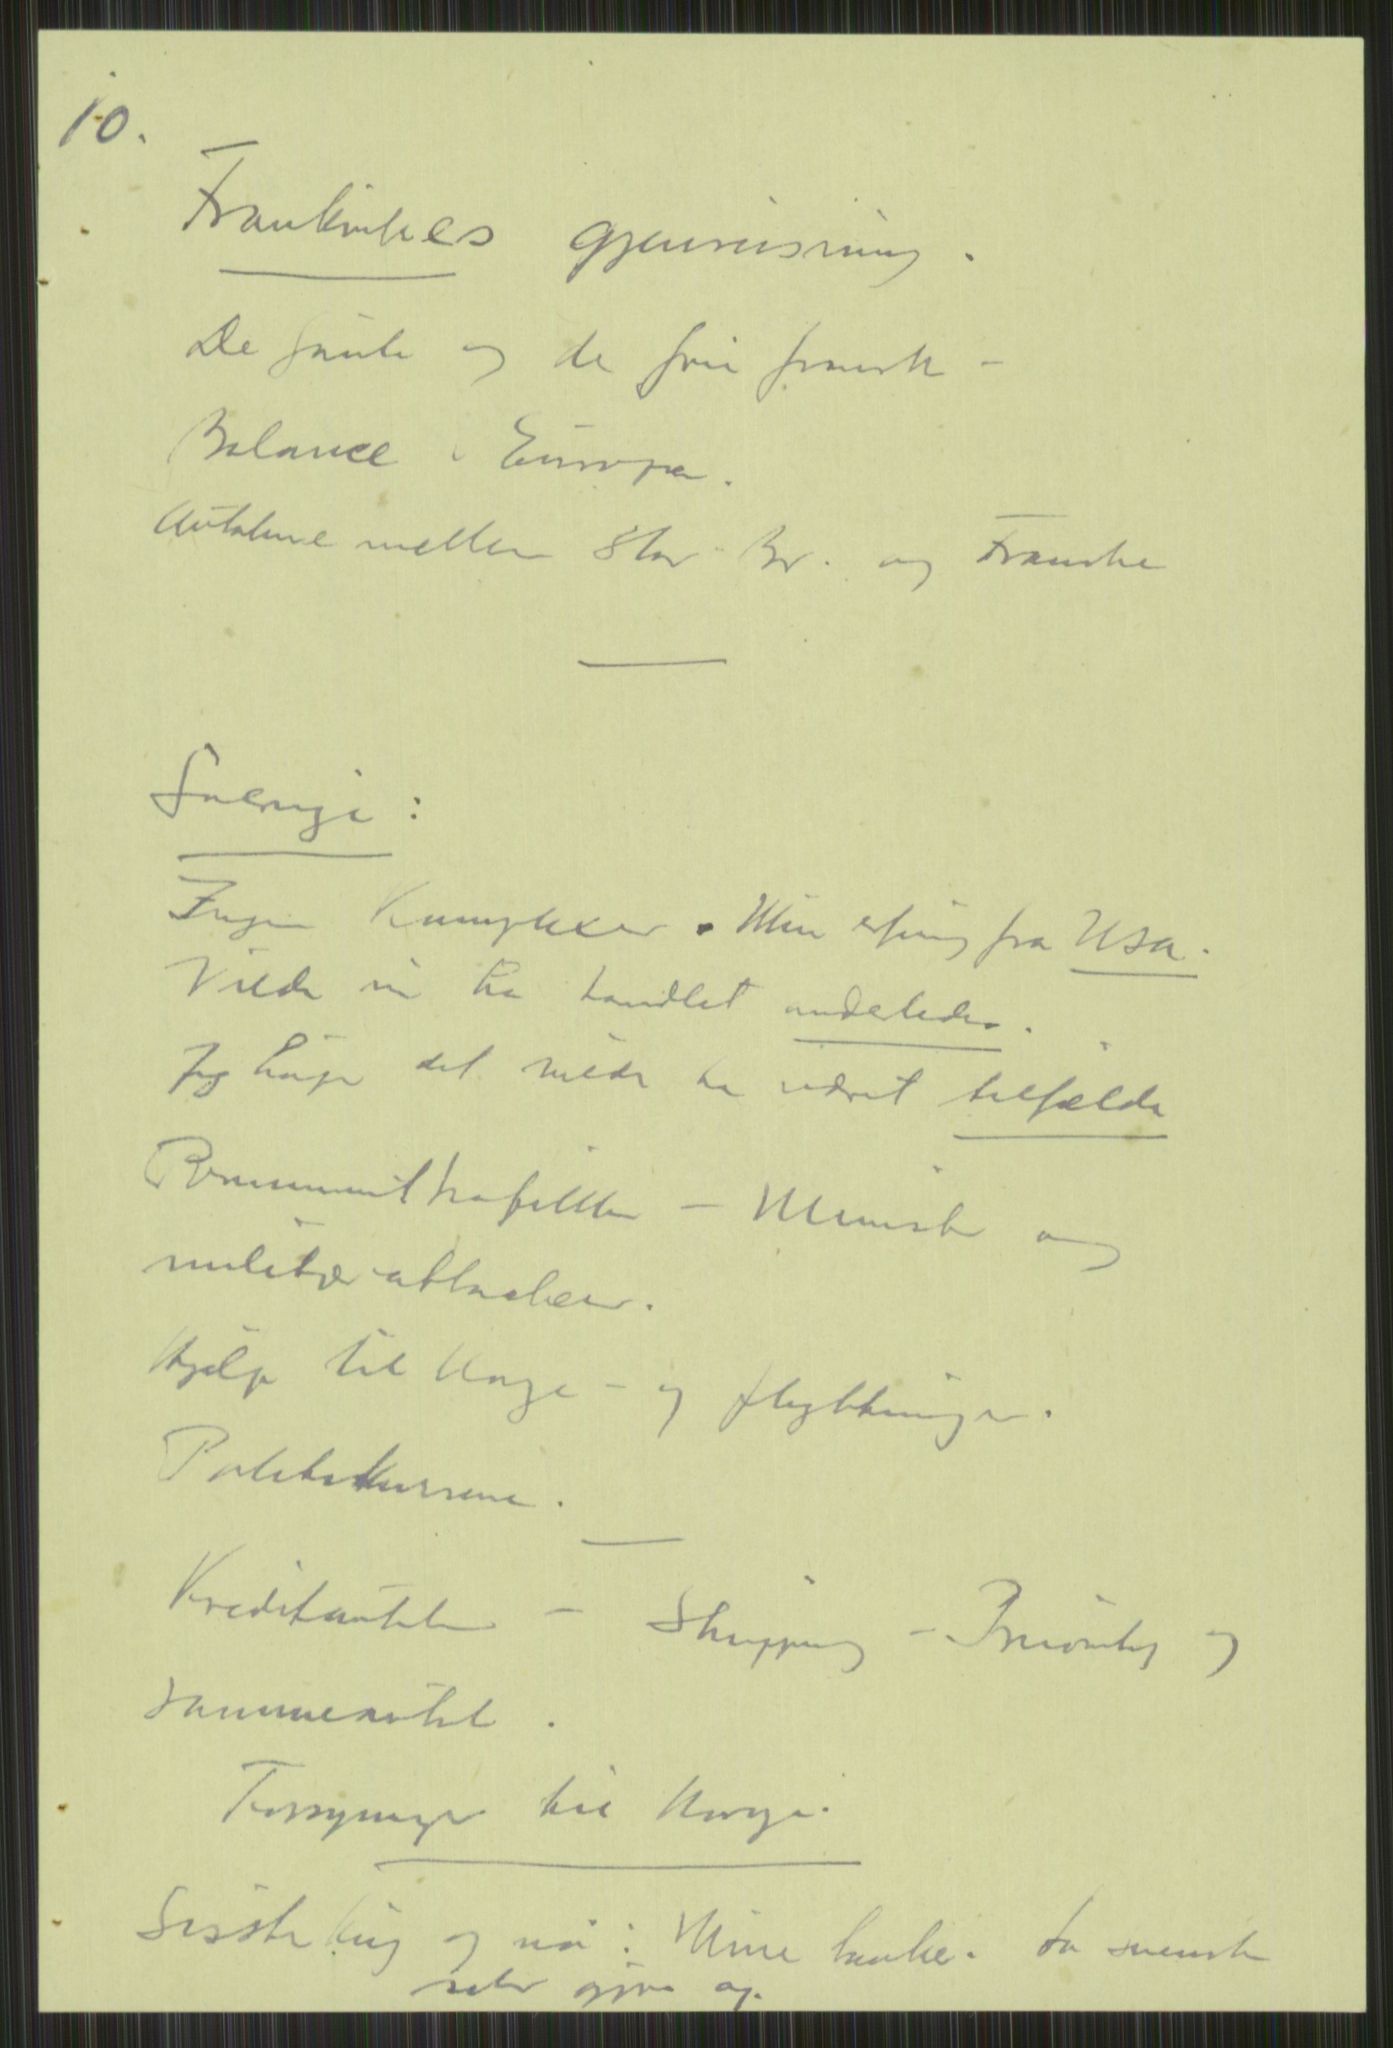 10.
Frankrikes gjenreisning.
De Gaulle og de frie franske -
Balance i Europa.
Avtalene mellem Stor-Br. og Franske
Sverige:
Ingen Komplekser. Min erfaring fra USA.
Vilde vi ha handlet anderledes.
Jeg håper det vilde ha været tilfelde
Permittenttrafikken - Minister og
militærattacheer.
Hjelp til Norge - og flyktninger.
Politikursene.
Kredittavtalen - Shipping - Priority og
varmeavtal.
Forsyninger til Norge.
Siste krig og nå: Mine tanker. La svenske
selv gjøre op.